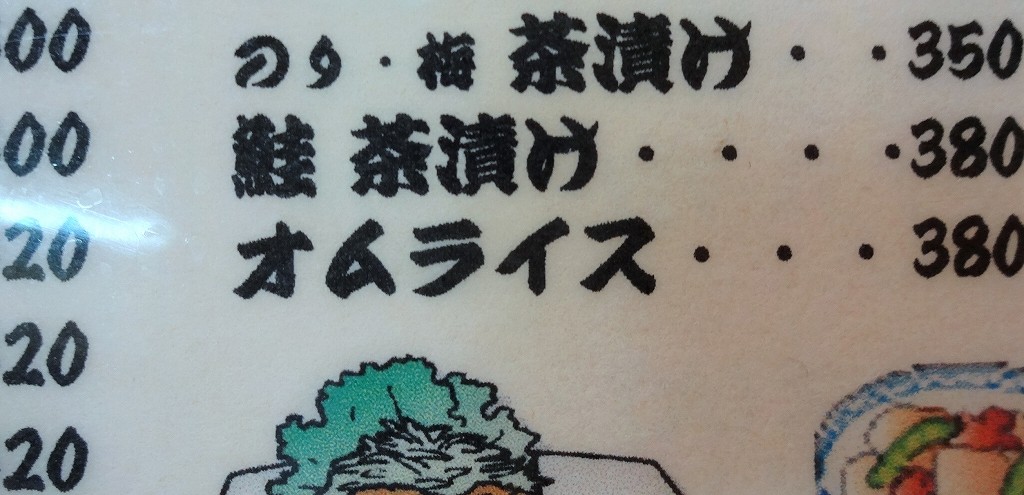 のり・梅 茶漬け・・350
鮭 茶漬け・・・・380
オムライス・・・380
00
00
20
20
20